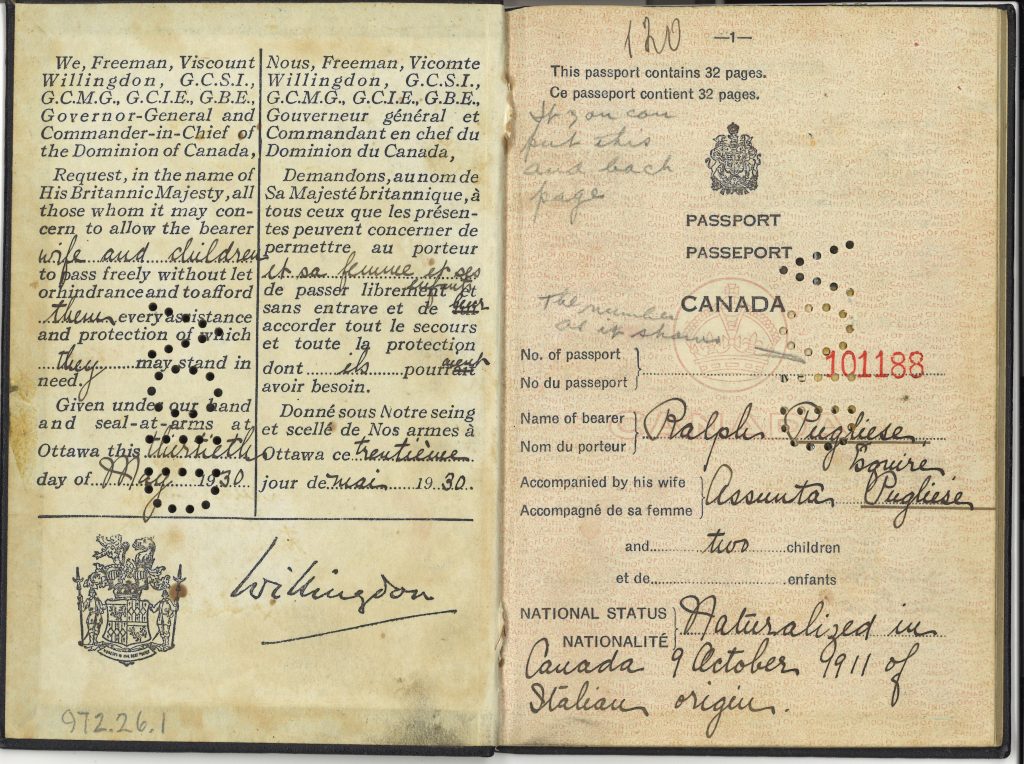 We, Freeman, Viscount
Willingdon, G.C.S.I.,
G.C.M.G., G.C.I.E., G.B.E.,
Governor-General and
Commander-in-Chief of
the Dominion of Canada,
Request, in the name of
His Britannic Majesty, all
those whom it may con-
cern to allow the bearer
wife and children
to pass freely without let
or hindrance and to afford
them every assistance
and protection of which
they may stand in
need.
Given under our hand
and seal-at-arms at
Ottawa this thirtieth
day of May 1930
Nous, Freeman, Vicomte
Willingdon, G.C.S.I.,
G.C.M.G., G.C.I.E., G.B.E.,
Gouverneur général et
Commandant en chef du
Dominion du Canada,
Demandons, au nom de
Sa Majesté britannique, à
tous ceux que les présen-
tes peuvent concerner de
permettre au porteur
et sa femme et ses
enfants
de passer librement et
sans entrave et de leur
accorder tout le secours
et toute la protection
dont ils pourraient
avoir besoin.
Donné sous Notre seing
et scelle de Nos armes à
Ottawa ce trentième
jour de mai 1930.
Willingdon
972.26.1
120
—1—
This passport contains 32 pages.
Ce passeport contient 32 pages.
If you can
put this
and back
page
PASSPORT
PASSEPORT
CANADA
The number
as it shows
No. of passport
No du passeport
101188
Name of bearer
Nom du porteur
Ralph Pugliese,
Esquire
Accompanied by his wife
Accompagné de sa femme
Assunta Pugliese
and two children
et de enfants
NATIONAL STATUS
NATIONALITÉ
Naturalized in
Canada 9 October 1911 of
Italian origin.